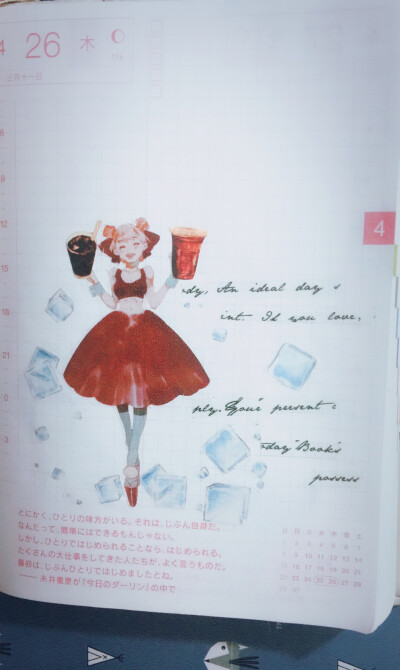 4 26 木
三月十一日
4
9
12
15
18
21
0
3
dy, An ideal day s
int. If you love,
ply. Your present
day Book's
possess
とにかく、ひとりの味方がいる。それは、じぶん自身だ。
なんだって、簡単にはできるもんじゃない。
しかし、ひとりではじめられることなら、はじめられる。
たくさんの大仕事をしてきた人たちが、よく言うものだ。
最初は、じぶんひとりではじめましたとね。
—— 糸井重里が『今日のダーリン』の中で
日 月 火 水 木 金 土
8 9 10 11 12 13 14
15 16 17 18 19 20 21
22 23 24 25 26 27 28
29 30